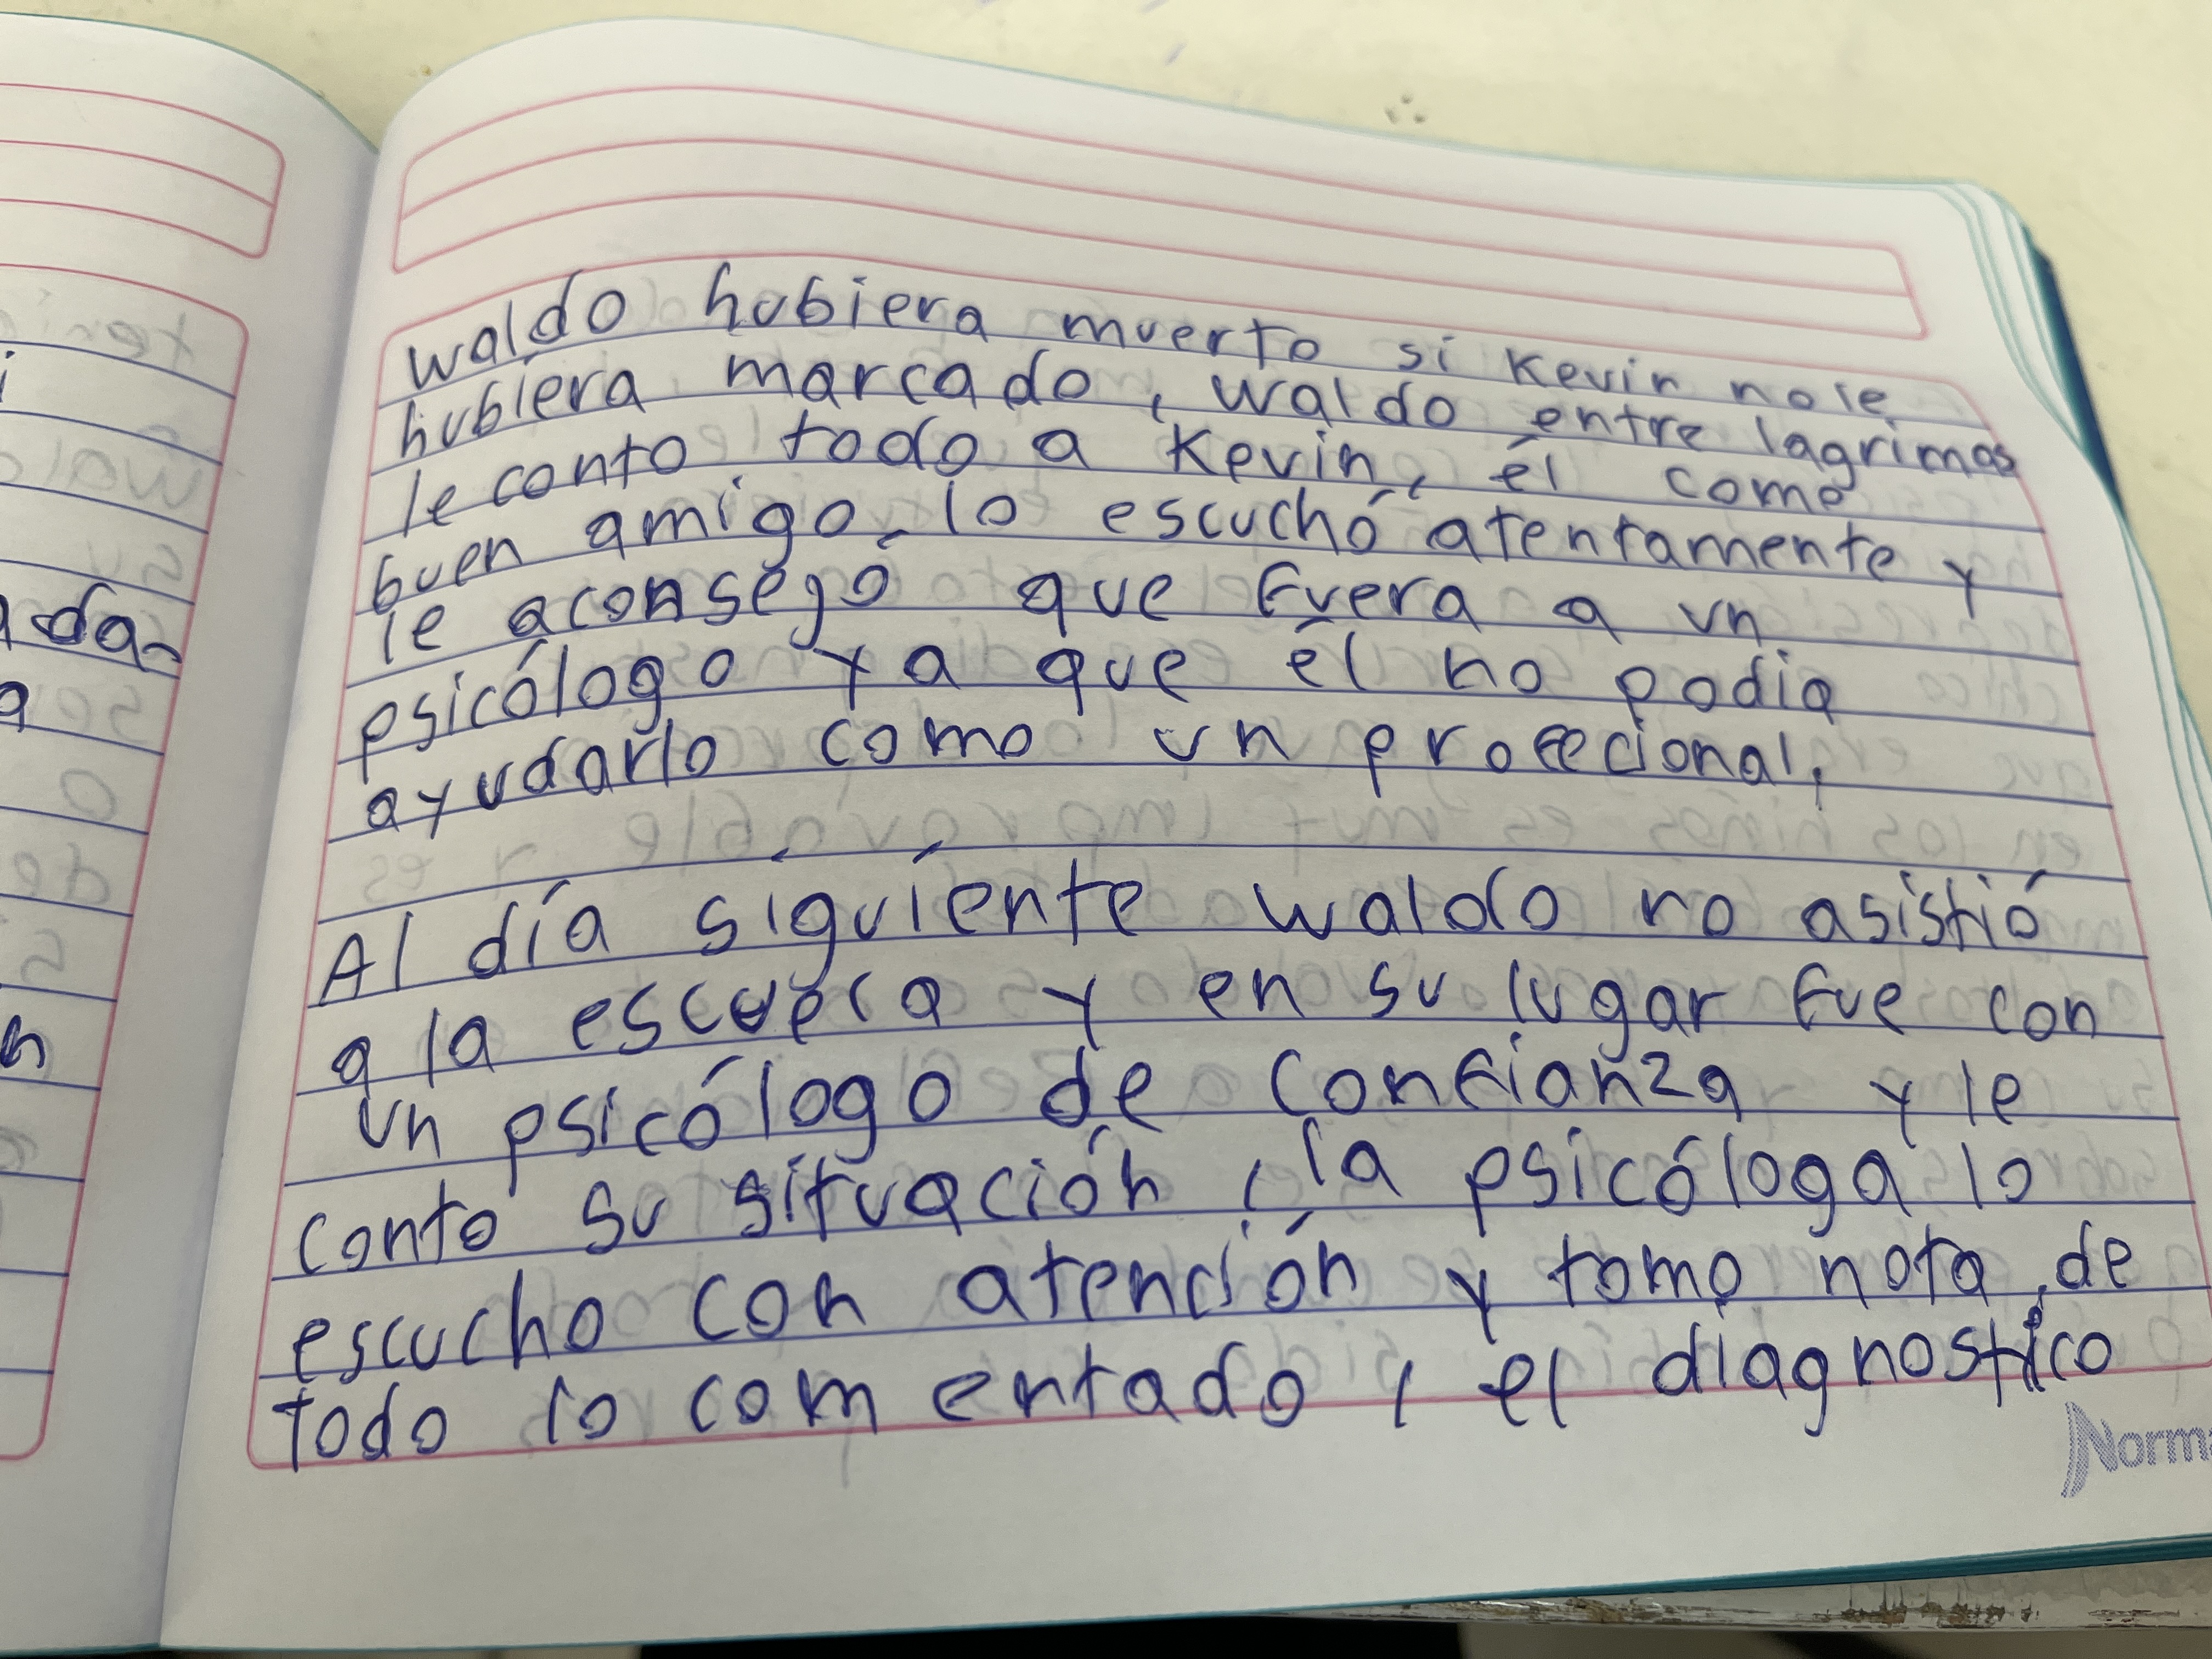 waldo hubiera muerto si Kevin no le
hubiera marcado, waldo entre lagrimas
le conto todo a Kevin, él como
buen amigo lo escuchó atentamente y
le aconsegó que fuera a un
psicólogo ya que él no podia
ayudarlo como un profecional,
Al día siguiente waldo no asistió
a la escuela y en su lugar fue con
un psicólogo de confianza y le
conto su situación, la psicóloga lo
escucho con atención y tomo nota de
todo lo comentado, el diagnostico
da-
a
n
Norma